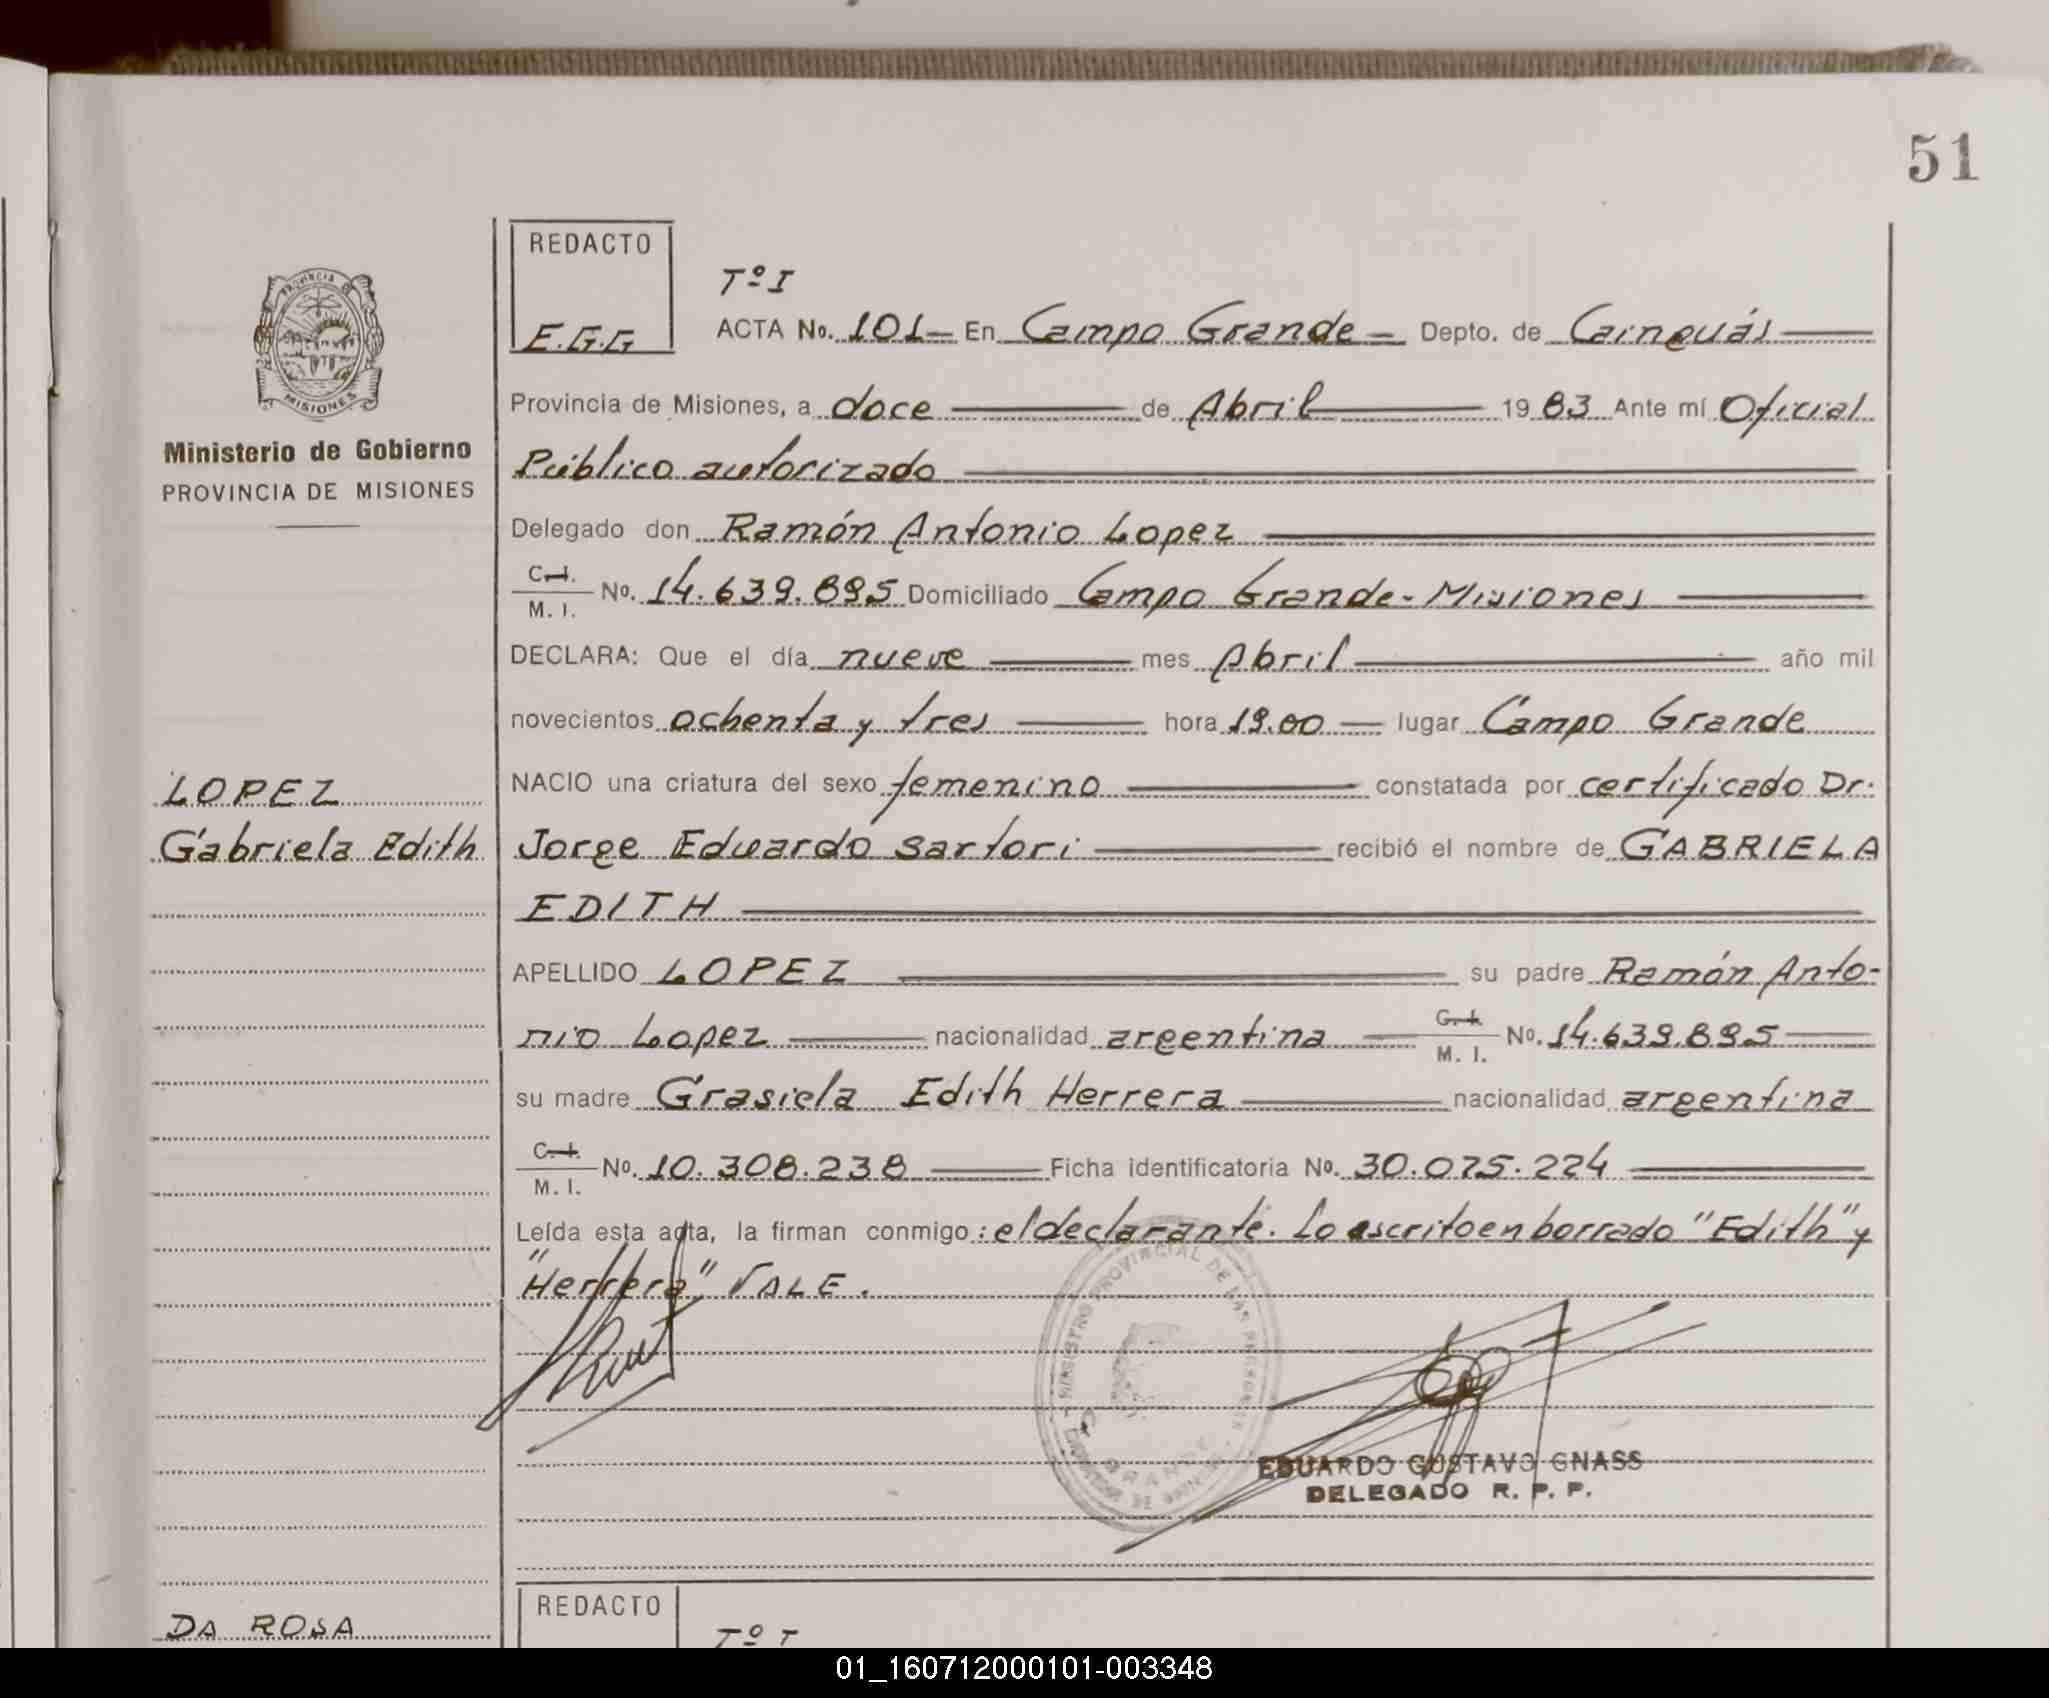 51
REDACTO
Tº I
E.G.G
ACTA No. 101 En Campo Grande Depto. de Cainguás
Provincia de Misiones, a doce de Abril 19 83 Ante mí Oficial
Público autorizado
Delegado don Ramón Antonio Lopez
C.I. / M. I. No. 14.639.895 Domiciliado Campo Grande-Misiones
DECLARA: Que el día nueve mes Abril año mil
novecientos ochenta y tres hora 19.00 lugar Campo Grande
NACIO una criatura del sexo femenino constatada por certificado Dr.
Jorge Eduardo Sartori recibió el nombre de GABRIELA
EDITH
APELLIDO LOPEZ su padre Ramón Anto-
nio Lopez nacionalidad argentina C.I. / M. I. No. 14.639.895
su madre Grasiela Edith Herrera nacionalidad argentina
C.I. / M. I. No. 10.308.238 Ficha identificatoria No. 30.075.224
Leída esta acta, la firman conmigo: el declarante. Lo escrito en borrado "Edith" y
"Herrera" VALE.
REGISTRO PROVINCIAL DE LAS PERSONAS
GRANDE
EDUARDO GUSTAVO GNASS
DELEGADO R. P. P.
PROVINCIA DE
MISIONES
Ministerio de Gobierno
PROVINCIA DE MISIONES
LOPEZ
Gabriela Edith
DA ROSA
REDACTO
Tº I
01_160712000101-003348